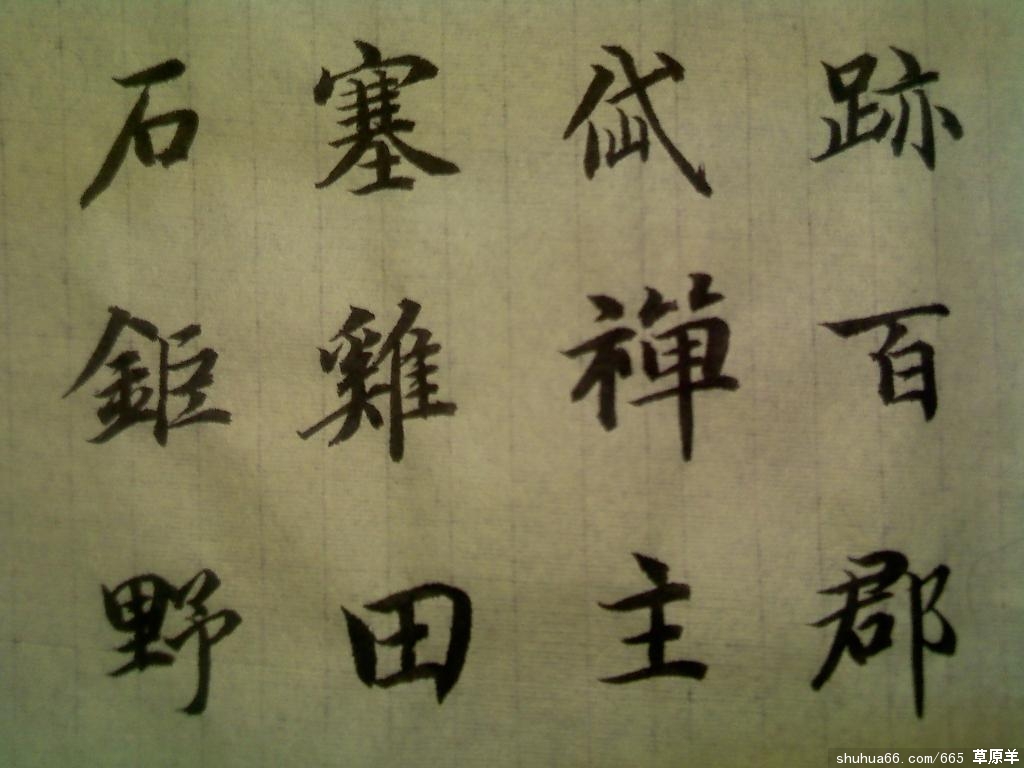 跡百郡
岱禪主
塞雞田
石鉅野
shuhua66.com/665 草原羊